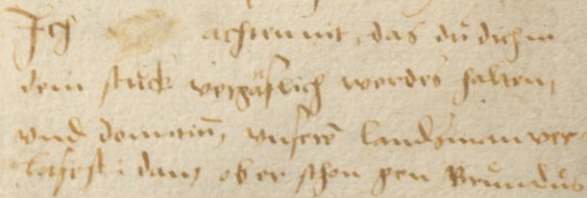 Ich achten nit, das du dich in
dem stuck vergäslich werdest halten,
vnd domitin, vnseren landsman ver
lasest: dann ob er schon gen Brundus